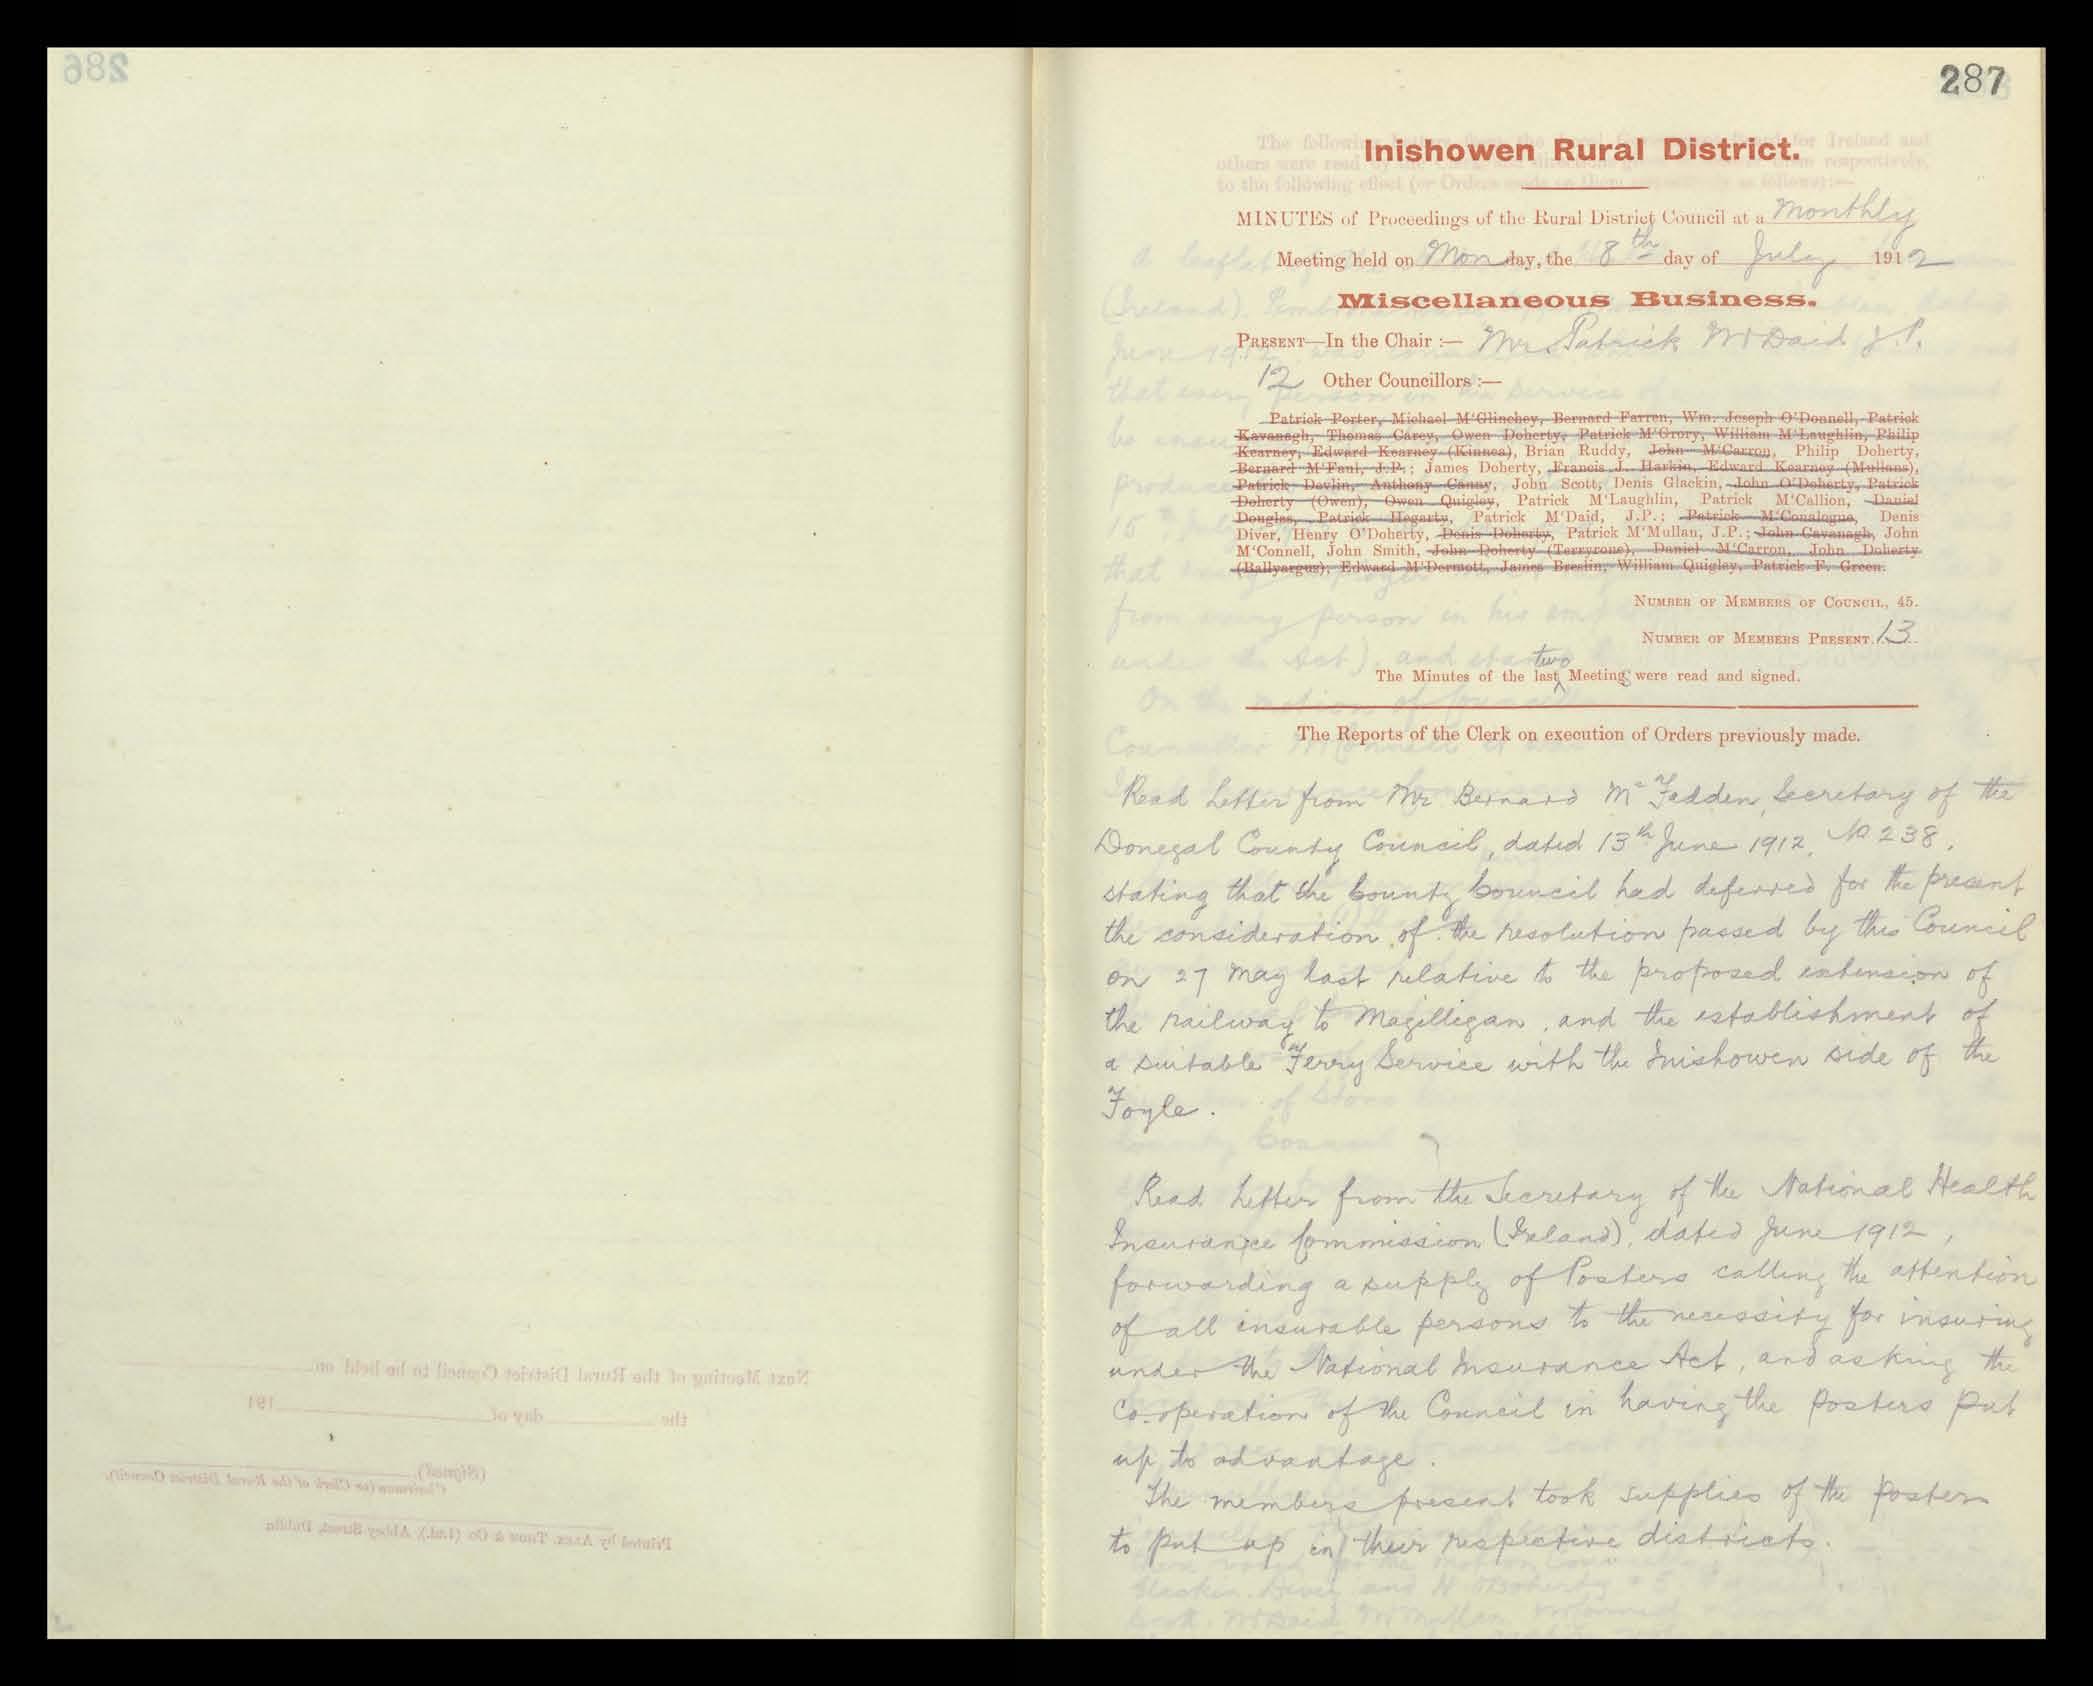 286
Next Meeting of the Rural District Council to be held on
the day of 191
(Signed)
Chairman (or Clerk of the Rural District Council).
Printed by Alex. Thom & Co (Ltd.), Abbey Street, Dublin
287
Inishowen Rural District.
MINUTES of Proceedings of the Rural District Council at a Monthly
Meeting held on Monday, the 8th day of July 1912
Miscellaneous Business.
PRESENT—In the Chair :— Mr. Patrick McDaid J.P.
12 Other Councillors :—
Patrick Porter, Michael M'Glinchey, Bernard Farren, Wm. Joseph O'Donnell, Patrick
Kavanagh, Thomas Carey, Owen Doherty, Patrick M'Grory, William M'Laughlin, Philip
Kearney, Edward Kearney (Kinnea), Brian Ruddy, John M'Carron, Philip Doherty,
Bernard M'Faul, J.P.; James Doherty, Francis J. Harkin, Edward Kearney (Mullans),
Patrick Devlin, Anthony Canny, John Scott, Denis Glackin, John O'Doherty, Patrick
Doherty (Owen), Owen Quigley, Patrick M'Laughlin, Patrick M'Callion, Daniel
Douglas, Patrick Hegarty, Patrick M'Daid, J.P.; Patrick M'Conalogue, Denis
Diver, Henry O'Doherty, Denis Doherty, Patrick M'Mullan, J.P.; John Cavanagh, John
M'Connell, John Smith, John Doherty (Terryrone), Daniel M'Carron, John Doherty
(Ballyargus), Edward M'Dermott, James Breslin, William Quigley, Patrick F. Green.
NUMBER OF MEMBERS OF COUNCIL, 45.
NUMBER OF MEMBERS PRESENT. 13
The Minutes of the last two Meetings were read and signed.
The Reports of the Clerk on execution of Orders previously made.
Read Letter from Mr Bernard McFadden, Secretary of the
Donegal County Council, dated 13th June 1912, No 238,
stating that the County Council had deferred for the present
the consideration of the resolution passed by this Council
on 27 May last relative to the proposed extension of
the railway to Magilligan, and the establishment of
a suitable Ferry Service with the Inishowen side of the
Foyle.
Read Letter from the Secretary of the National Health
Insurance Commission (Ireland), dated June 1912,
forwarding a supply of Posters calling the attention
of all insurable persons to the necessity for insuring
under the National Insurance Act, and asking the
Co-operation of the Council in having the posters put
up to advantage.
The members present took supplies of the posters
to put up in their respective districts.